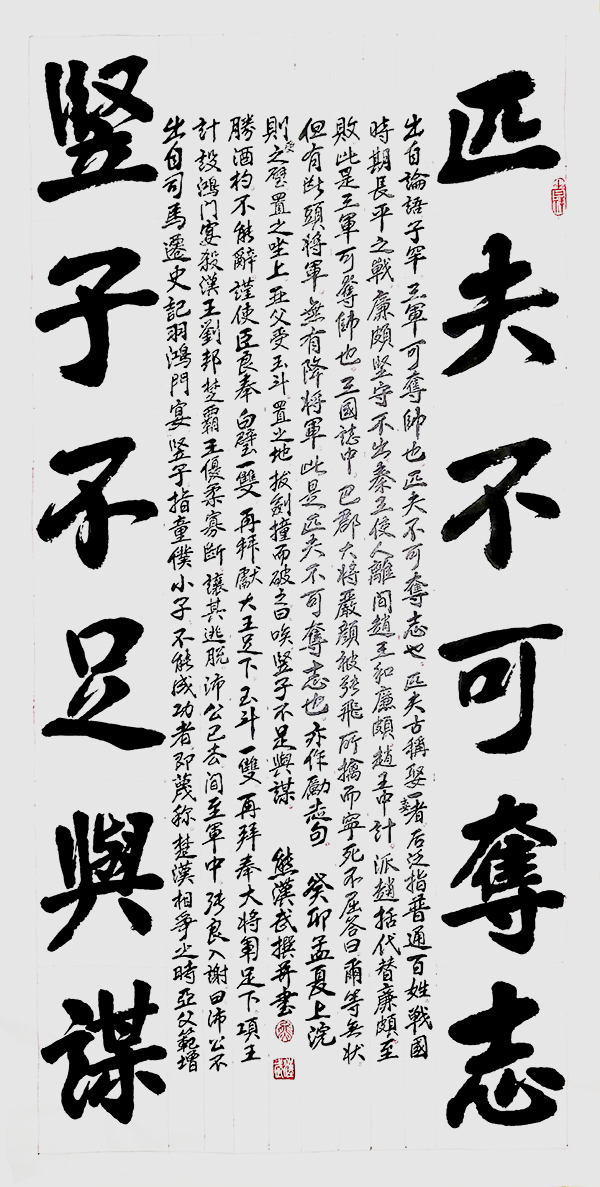 匹夫不可奪志
出自論語子罕 三軍可奪帥也 匹夫不可奪志也 匹夫古稱娶一妻者 后泛指普通百姓 戰國
時期長平之戰 廉頗堅守不出 秦王使人離间趙王和廉頗 趙王中计 派趙括代替廉頗 至
敗 此是三軍可奪帥也 三國誌中 巴郡大将嚴顔被張飛所擒而寧死不屈 答曰 爾等無状
但有断頭將軍 無有降將軍 此是匹夫不可奪志也 亦作勵志句 癸卯孟夏上浣
竪子不足與謀
出自司馬遷史記羽鴻門宴 竖子指童僕小子 不能成功者 即蔑称 楚漢相爭之時 亞父範增
計設鴻門宴殺漢王劉邦 楚霸王優柔寡断 讓其逃脱 沛公已去 间至軍中 張良入謝曰 沛公不
勝酒杓不能辭 謹使臣良奉白璧一雙 再拜獻大王足下 玉斗一雙 再拜奉大将軍足下 項王
則受之璧置之坐上 亞父受玉斗 置之地 拔劍撞而破之曰 唉 竖子不足與謀
熊漢武撰并書